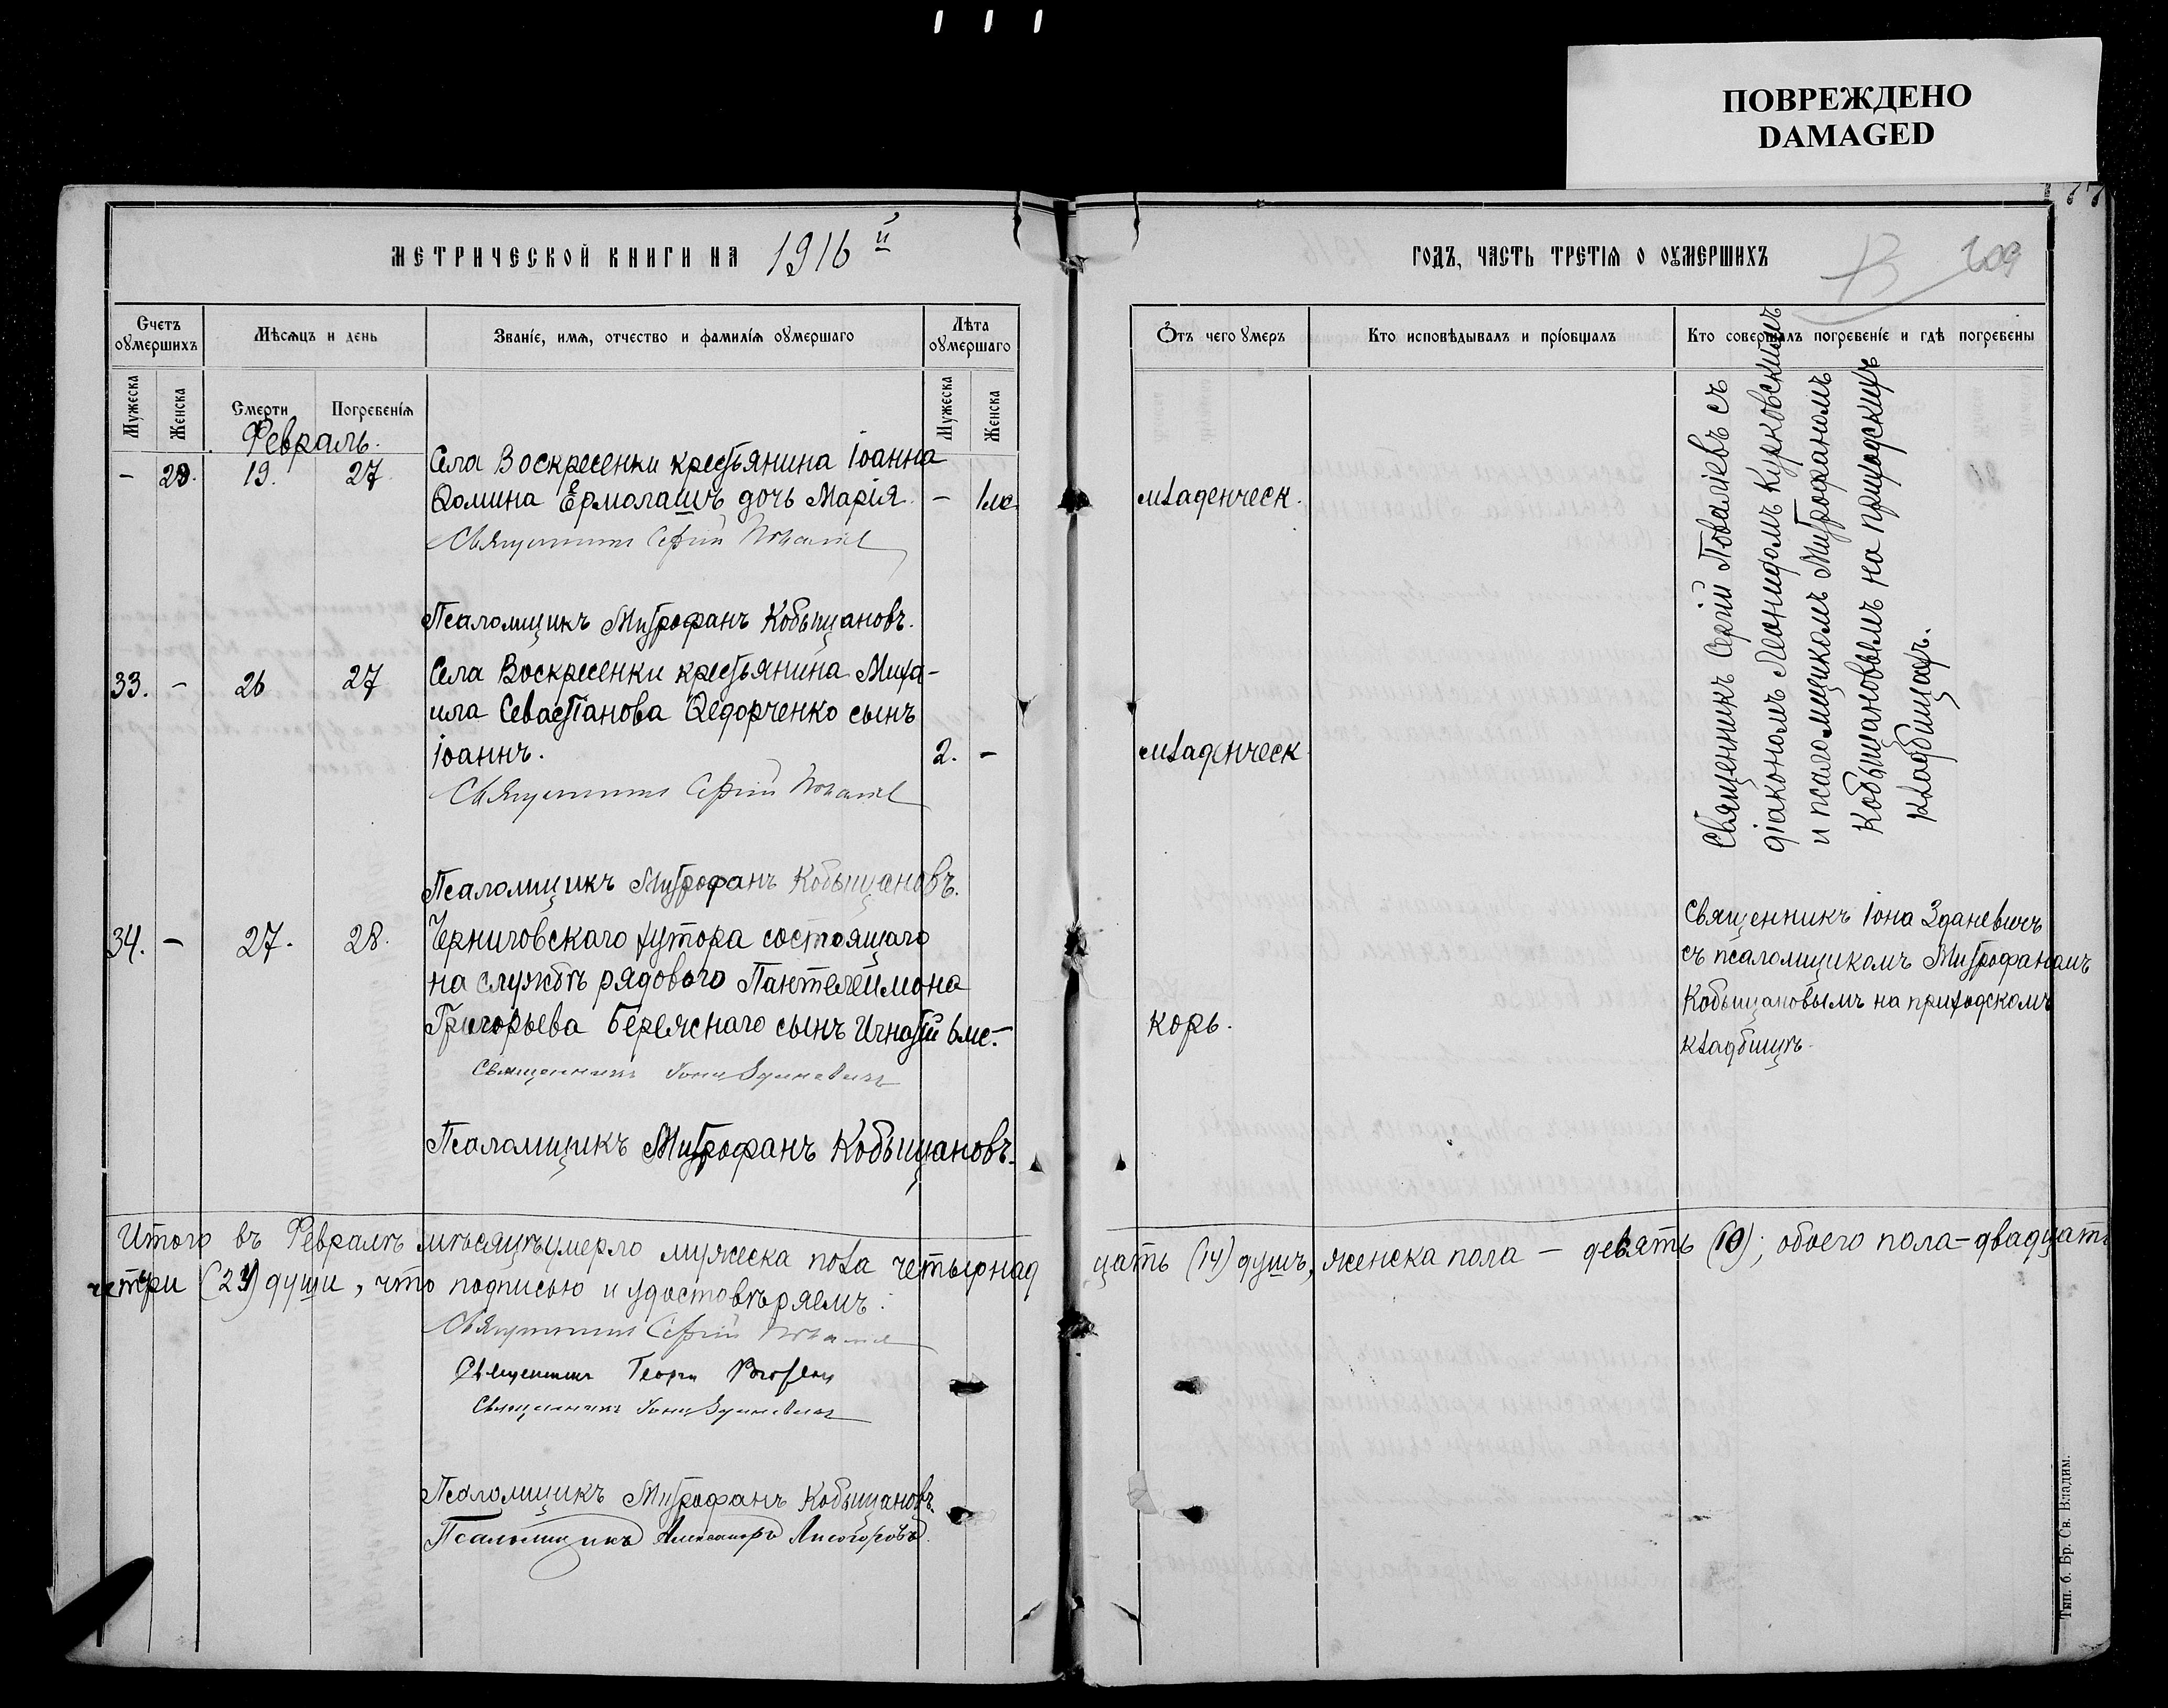 ПОВРЕЖДЕНО
DAMAGED
МЕТРИЧЕСКОЙ КНИГИ НА 1916 й
ГОДЪ, ЧАСТЬ ТРЕТІЯ О ОУМЕРШИХЪ
209
Счетъ оумершихъ
Мѣсяцъ и день
Званіе, имя, отчество и фамилія оумершаго
Лѣта оумершаго
Отъ чего умеръ
Кто исповѣдывалъ и пріобщалъ
Кто совершалъ погребеніе и гдѣ погребены
Мужеска
Женска
Смерти
Погребенія
Мужеска
Женска
Февраль.
– 19. 27
Села Воскресенки крестьянина Іоанна
Фомина Ермолашъ дочь Марія. – 1 мс.
младенческ.
Священникъ Сергій Повалѣевъ
Псаломщикъ Митрофанъ Кобыщановъ.
33. – 26 27
Села Воскресенки крестьянина Миха-
ила Севастіанова Ѳедорченко сынъ
Іоаннъ. 2. –
младенческ
Священникъ Сергій Повалѣевъ
Псаломщикъ Митрофанъ Кобыщановъ.
Священникъ Сергій Повалѣевъ съ
діакономъ Леонидомъ Курковскимъ
и псаломщикомъ Митрофаномъ
Кобыщановымъ на приходскихъ
кладбищахъ.
34. – 27. 28.
Черниговскаго хутора состоящаго
на службѣ рядового Пантелеймона
Григорьева Бережнаго сынъ Игнатій 6 мс. –
корь.
Священникъ Іона Зданевичъ
съ псаломщикомъ Митрофаномъ
Кобыщановымъ на приходскомъ
кладбищѣ.
Священникъ Іона Зданевичъ
Псаломщикъ Митрофанъ Кобыщановъ.
Итого въ Февралѣ мѣсяцѣ умерло мужеска пола четырнад
цать (14) душъ, женска пола – девять (10); обоего пола – двадцать
четыри (24) души, что подписью и удостовѣряемъ:
Священникъ Сергій Повалѣевъ
Священникъ Георгій
Священникъ Іона Зданевичъ
Псаломщикъ Митрофанъ Кобыщановъ
Псаломщикъ Александръ Лисогоровъ.
Тип. б. Бр. Св. Владим.